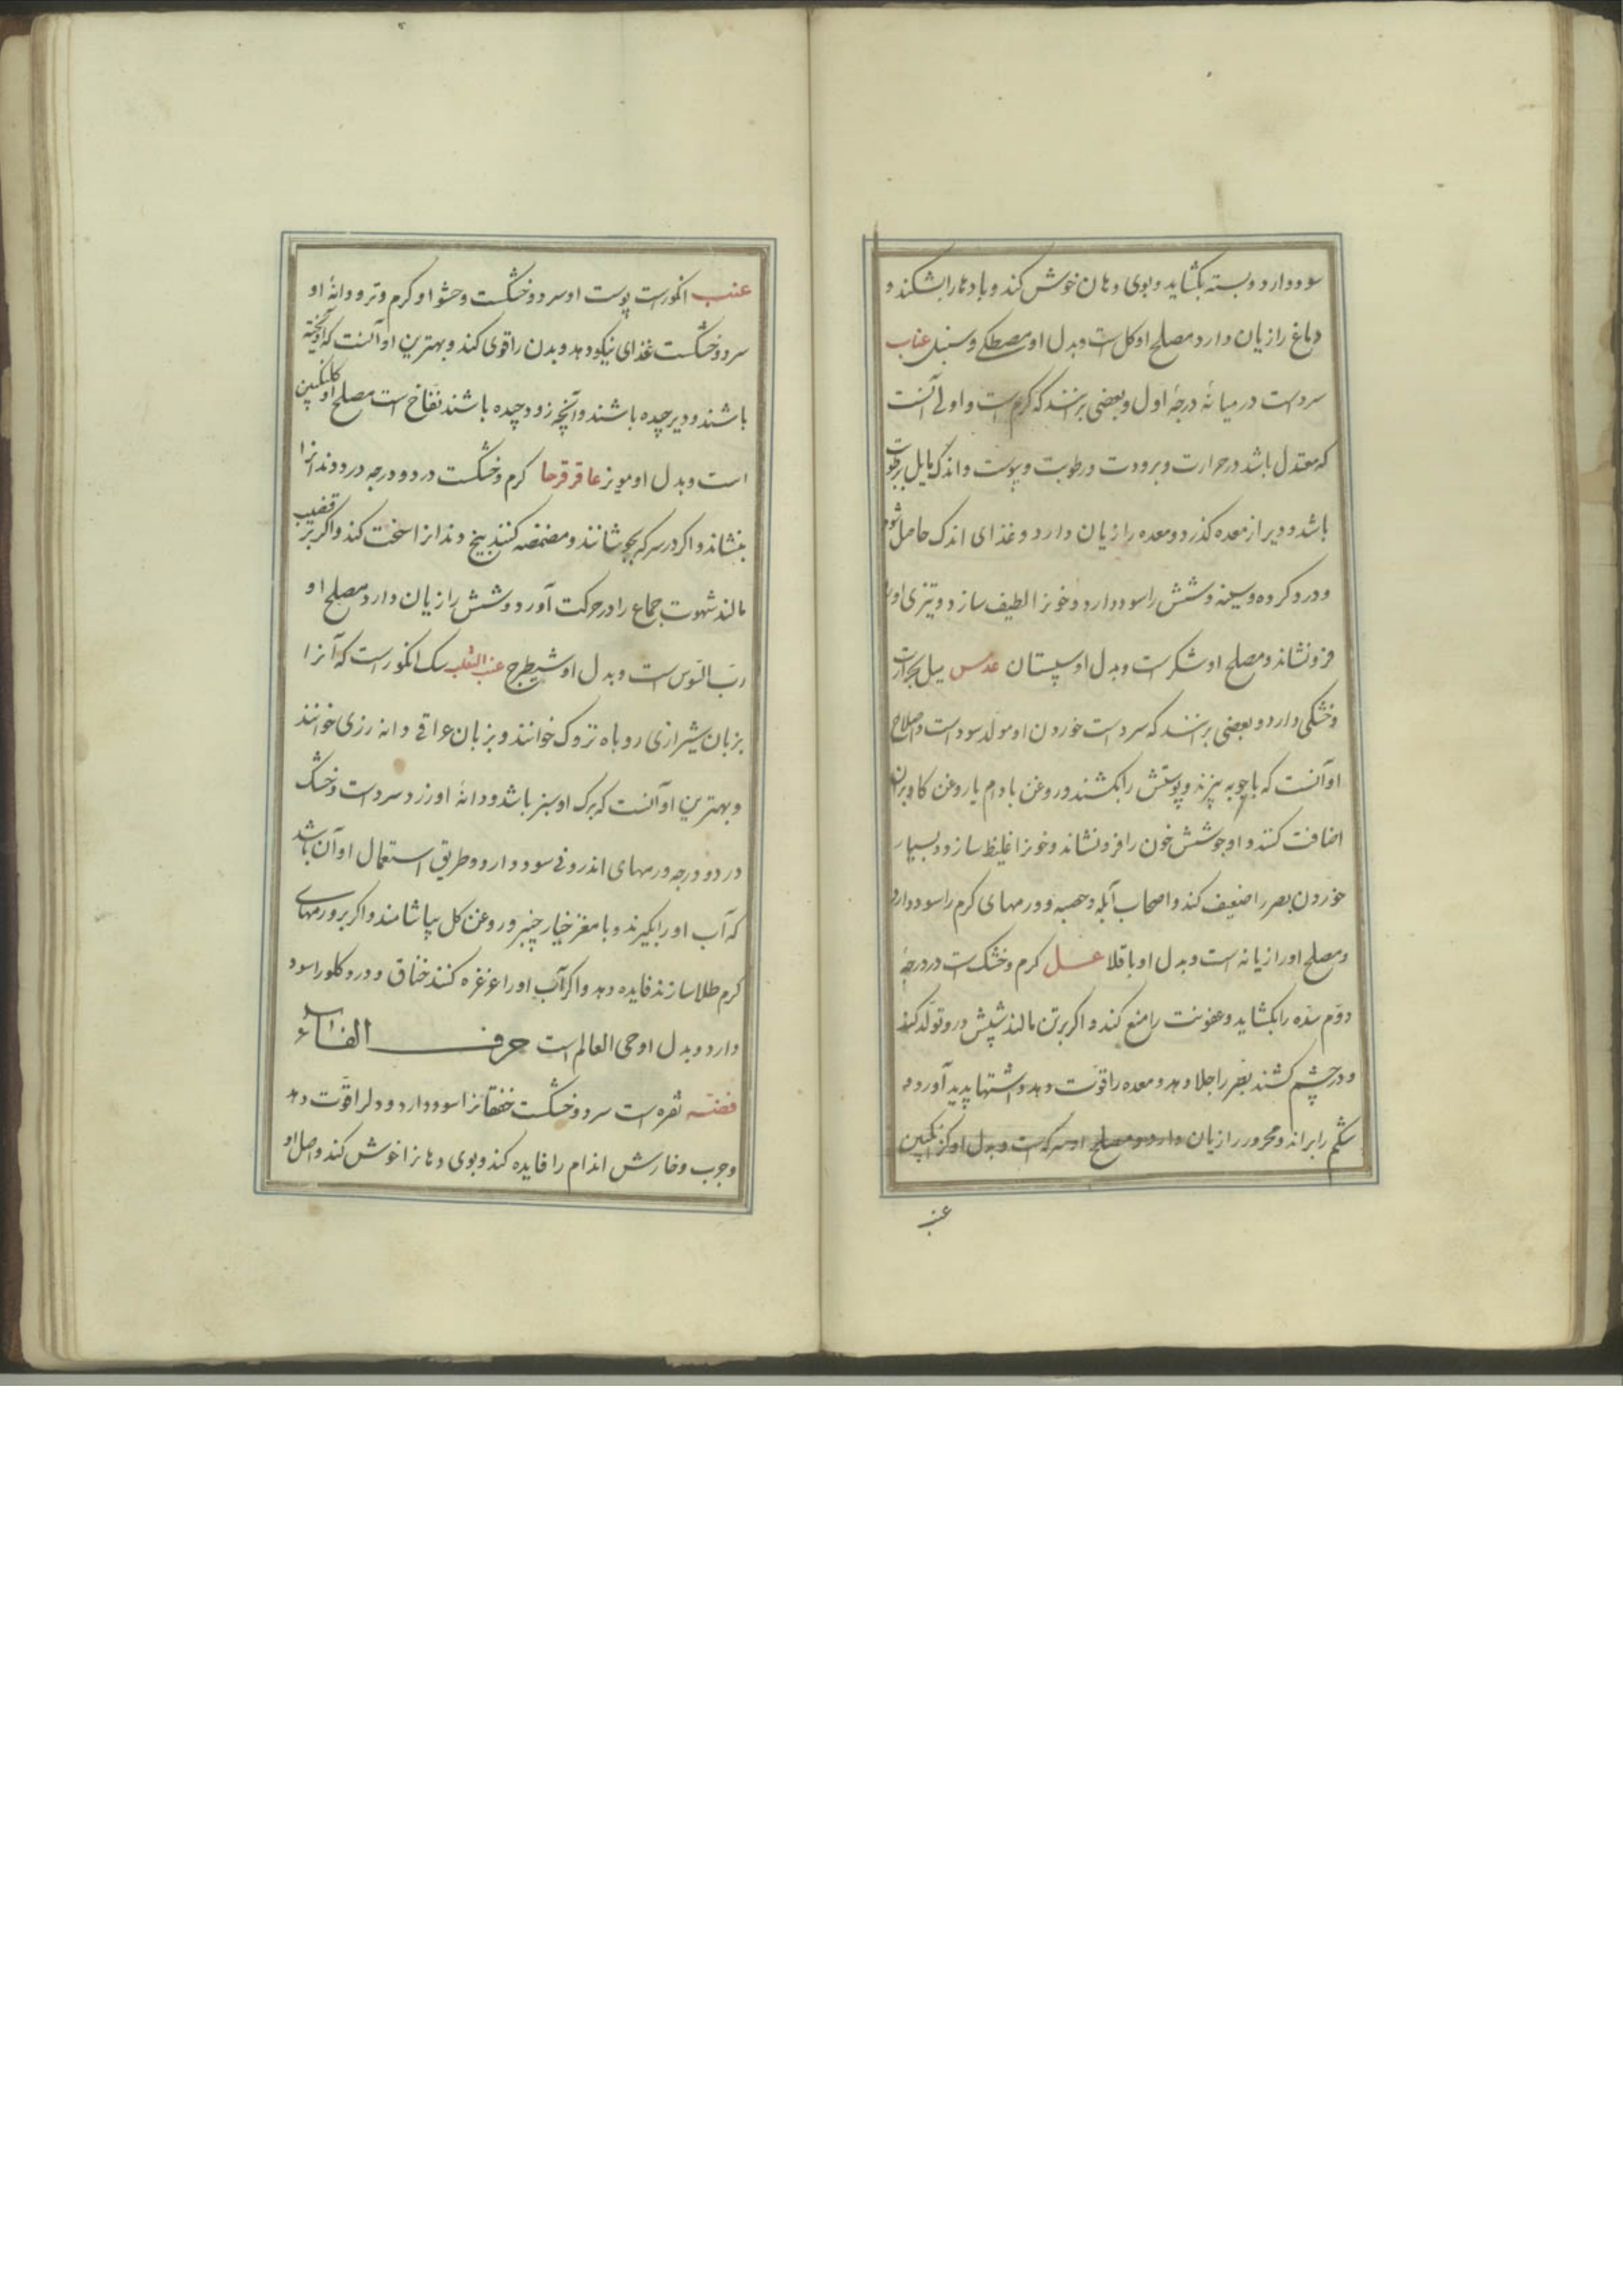 سود دارد و بسته بگشاید و بوی دهان خوش کند و بادها را بشکند و
دماغ را زیان دارد مصلح او کل است و بدل او مصطکی و سنبل عناب
سردست در میانهٔ درجهٔ اول و بعضی برانند که کرم است و اولی آنست
که معتدل باشد در حرارت و برودت و رطوبت و یبوست و اندک مایل برطوبت
باشد و دیر از معده کذرد و معده را زیان دارد و غذای اندک حاصل شود
و درد کرده و سینه و شش را سود دارد و خونرا لطیف سازد و تیزی او را
فرو نشاند و مصلح او شکرست و بدل او سپستان عدس میل بحرارت
و خشکی دارد و بعضی برانند که سردست خوردن او مولد سوداست و اصلاح
او آنست که با جو به پزند و پوستش را بکشند و روغن بادام یا روغن کاو بران
اضافت کنند و او جوشش خون را فرو نشاند و خونرا غلیظ سازد و بسیار
خوردن بصر را ضعیف کند و اصحاب آبله و حصبه و ورمهای کرم را سود دارد
و مصلح او رازیانه است و بدل او باقلا عسل کرم و خشک است در درجهٔ
دوّم سدّه را بکشاید و عفونت را منع کند و اکر برتن مالند شپش درو تولّد کند
و در چشم کشند بصر را جلا دهد و معده را قوّت دهد و اشتها پدید آورد و
شکم را براند و محرور را زیان دارد و مصلح او سرکه است و بدل او کزنکبین
عنب
عنب انکورست پوست او سرد و خشکست و حشو او کرم و تر و دانهٔ او
سرد و خشکست غذای نیکو دهد و بدن را قوی کند و بهترین او آنست که آویخته
باشند و دیر چیده باشند و آنچه زود چیده باشند نفّاخ است مصلح او کلنکبین
است و بدل او مویز عاقرقرحا کرم و خشکست در دو درجه درد دندانرا
بنشاند و اکر در سرکه بجوشانند و مضمضه کنند بیخ دندانرا سخت کند و اکر بر قضیب
مالند شهوت جماع را در حرکت آورد و شش را زیان دارد مصلح او
ربّ السّوس است و بدل او شیطرج عنب الثعلب سک انکورست که آنرا
بزبان شیرازی روباه تزوک خوانند و بزبان عراقی دانه رزی خوانند
و بهترین او آنست که برک او سبز باشد و دانهٔ او زرد سردست و خشک
در دو درجه ورمهای اندرونی سود دارد و طریق استعمال او آن باشد
که آب او را بکیرند و با مغز خیار چنبر و روغن کل بیاشامند و اکر بر ورمهای
کرم طلا سازند فایده دهد و اکر آب او را غرغره کنند خناق و درد کلو را سود
دارد و بدل او حی العالم است حرف الفاء
فضّه نقره است سرد و خشکست خفقانرا سود دارد و دلرا قوّت دهد
و جرب و خارش اندام را فایده کند و بوی دهانرا خوش کند و اصل او